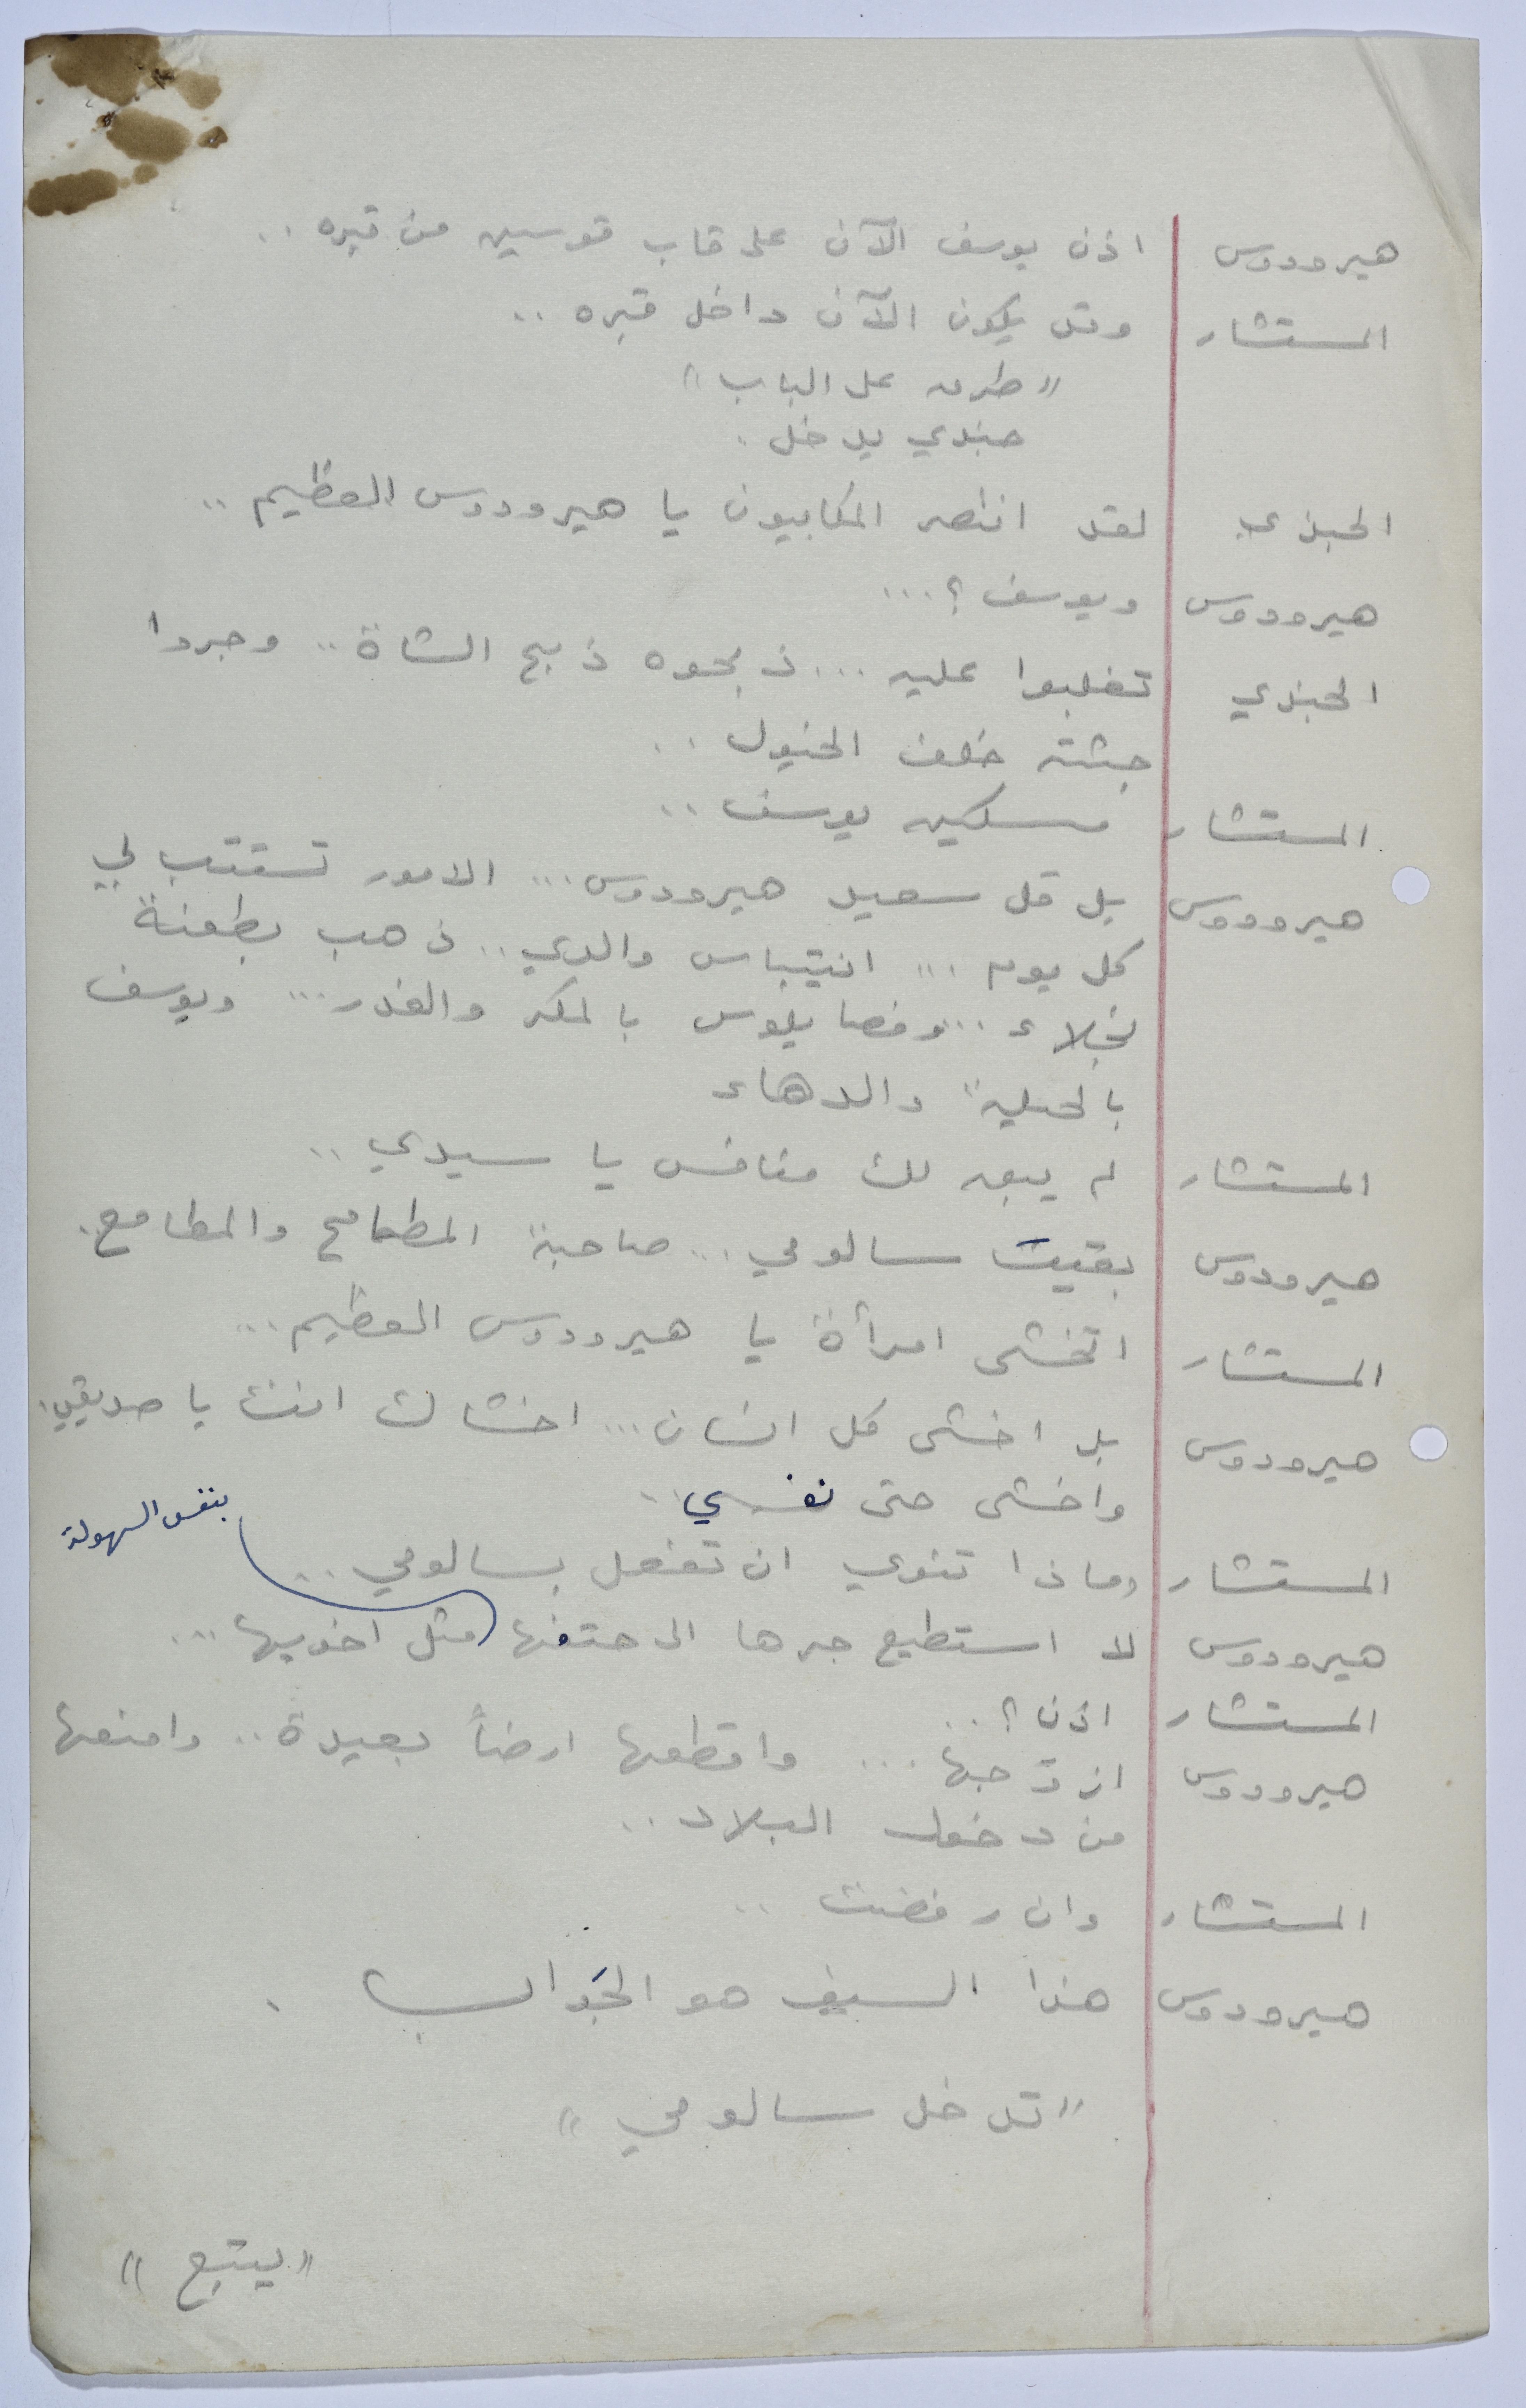 هيرودوس اذن يوسف الآن على قاب قوسين من قبره ..
المستشار وقد يكون الآن داخل قبره ..
"طرق على الباب"
جندي يدخل .
الجندي لقد انتصر المكابيون يا هيرودوس العظيم ..
هيرودوس ويوسف ؟ ...
الجندي تغلبوا عليه ... ذبحوه ذبح الشاة .. وجردوا
جثته خلف الخيول ..
المستشار مسكين يوسف ..
هيرودوس بل قل سعيد هيرودوس ... الامور تستتب لي
كل يوم ... انتيباس والدي .. ذهب بطعنة
نجلاء ... وفصايلوس بالمكر والغدر ... ويوسف
بالحيلة والدهاء
المستشار لم يبق لك منافس يا سيدي ..
هيرودوس بقيت سالومي ... صاحبة المطامح والمطامع .
المستشار اتخشى امرأة يا هيرودوس العظيم ...
هيرودوس بل اخشى كل انسان ... اخشاك انت يا صديقي .
واخشى حتى نفسي ..
بنفس السهولة
المستشار وماذا تنوي ان تفعل بسالومي ..
هيرودوس لا استطيع جرها الى حتفها مثل اخويها ...
المستشار اذن ؟ ..
هيرودوس ازوجها ... واقطعها ارضاً بعيدة .. وامنعها
من دخول البلاد ..
المستشار وان رفضت ..
هيرودوس هذا السيف هو الجواب .
"تدخل سالومي"
"يتبع"